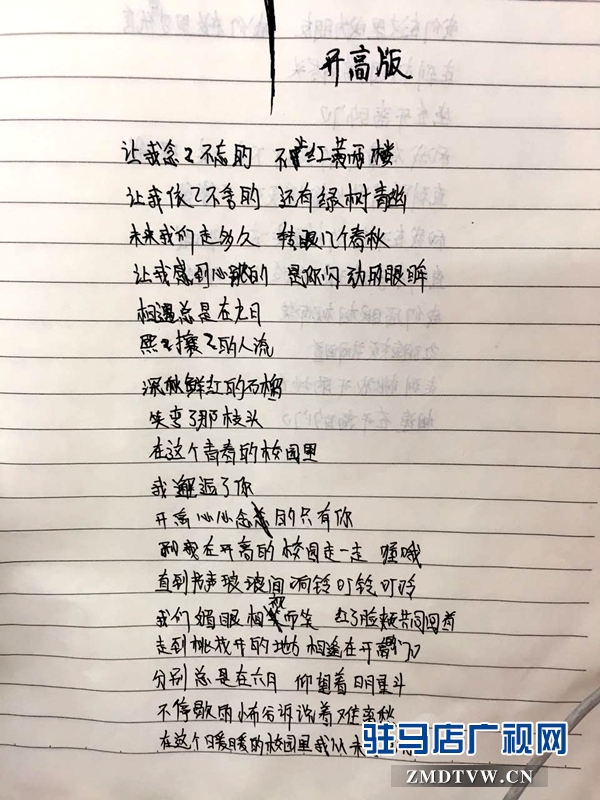 开高版
让我念々不忘的 不止红黄两楼
让我依々不舍的 还有绿树青幽
未来我们走多久 转眼几个春秋
让我感到心跳的 是你闪动的眼眸
相遇总是在九月
熙々攘々的人流
深秋鲜红的石榴
笑弯了那枝头
在这个青春的校园里
我邂逅了你
开高心心念念的只有你
和我在开高的校园走一走 喔哦
直到书声琅琅间响铃叮铃叮呤
我们媚眼相视而笑 红了脸颊共同回首
走到桃花开的地方 相逢在开高门口
分别总是在六月 仰望着明星斗
不停歇雨水布谷诉说着难离愁
在这个暖暖的校园里我从未
驻马店广视网
ZMDTVW.CN